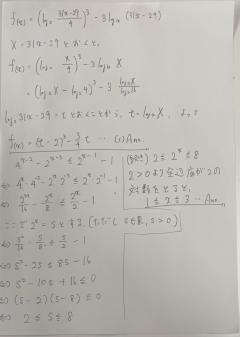 f(x) = (log₂ (3|x-29)/4)³ - 3log₁₆ (3|x-29)
X = 3|x-29 とおくと、
f(x) = (log₂ X/4)³ - 3log₁₆ X
= (log₂X - log₂4)³ - 3 log₂X/log₂16
log₂ 3|x-29 = t とおくことから、t = log₂X, よって
f(x) = (t-2)³ - 3/4 t … (1) Ans.
4^(x-2) - 2^(x-3) ≤ 2^(x-1) - 1
⇔ 4^x·4^-2 - 2^x·2^-3 ≤ 2^x·2^-1 - 1
⇔ 2^2x/16 - 2^x/8 ≤ 2^x/2 - 1
ここで 2^x = s とする (ただし s∈R, s>0)
⇔ s²/16 - s/8 ≤ s/2 - 1
⇔ s² - 2s ≤ 8s - 16
⇔ s² - 10s + 16 ≤ 0
⇔ (s-2)(s-8) ≤ 0
⇔ 2 ≤ s ≤ 8
2 ≤ 2^x ≤ 8
2>0より全辺底が2の
対数をとると、
1 ≤ x ≤ 3 … Ans.